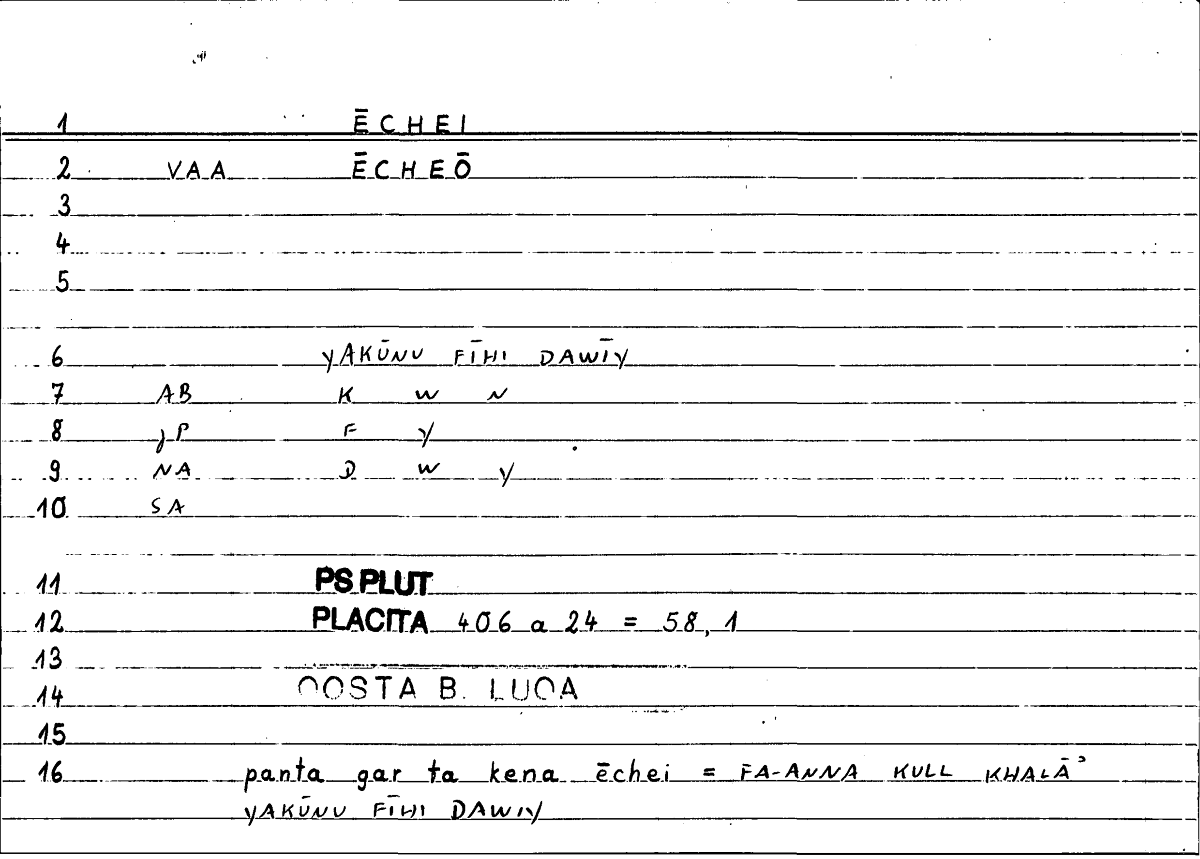 1 ĒCHEI
2 VAA ĒCHEŌ
3
4
5
6 YAKŪNU FĪHI DAWĪY
7 AB K W N
8 JP F Y
9 NA D W Y
10 SA
11 PS PLUT
12 PLACITA 406 a 24 = 58, 1
13
14 QOSTA B. LUQA
15
16 panta gar ta kena ēchei = FA-ANNA KULL KHALĀʾ
YAKŪNU FĪHI DAWIY